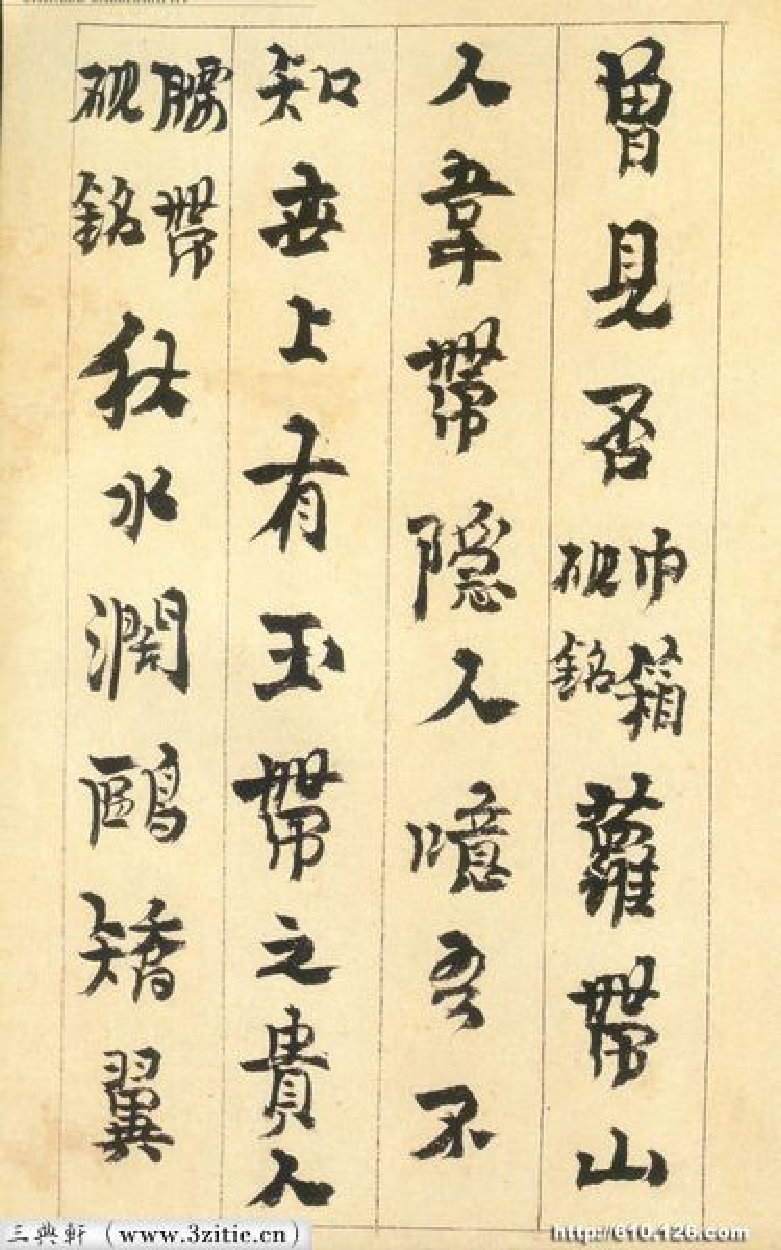 曾見否巾箱硯銘蘿帶山
人韋帶隱人噫吾不
知世上有玉帶之貴人
腰帶硯銘秋水潤鷗矯翼
三典軒（www.3zitie.cn）
http://610.126.com